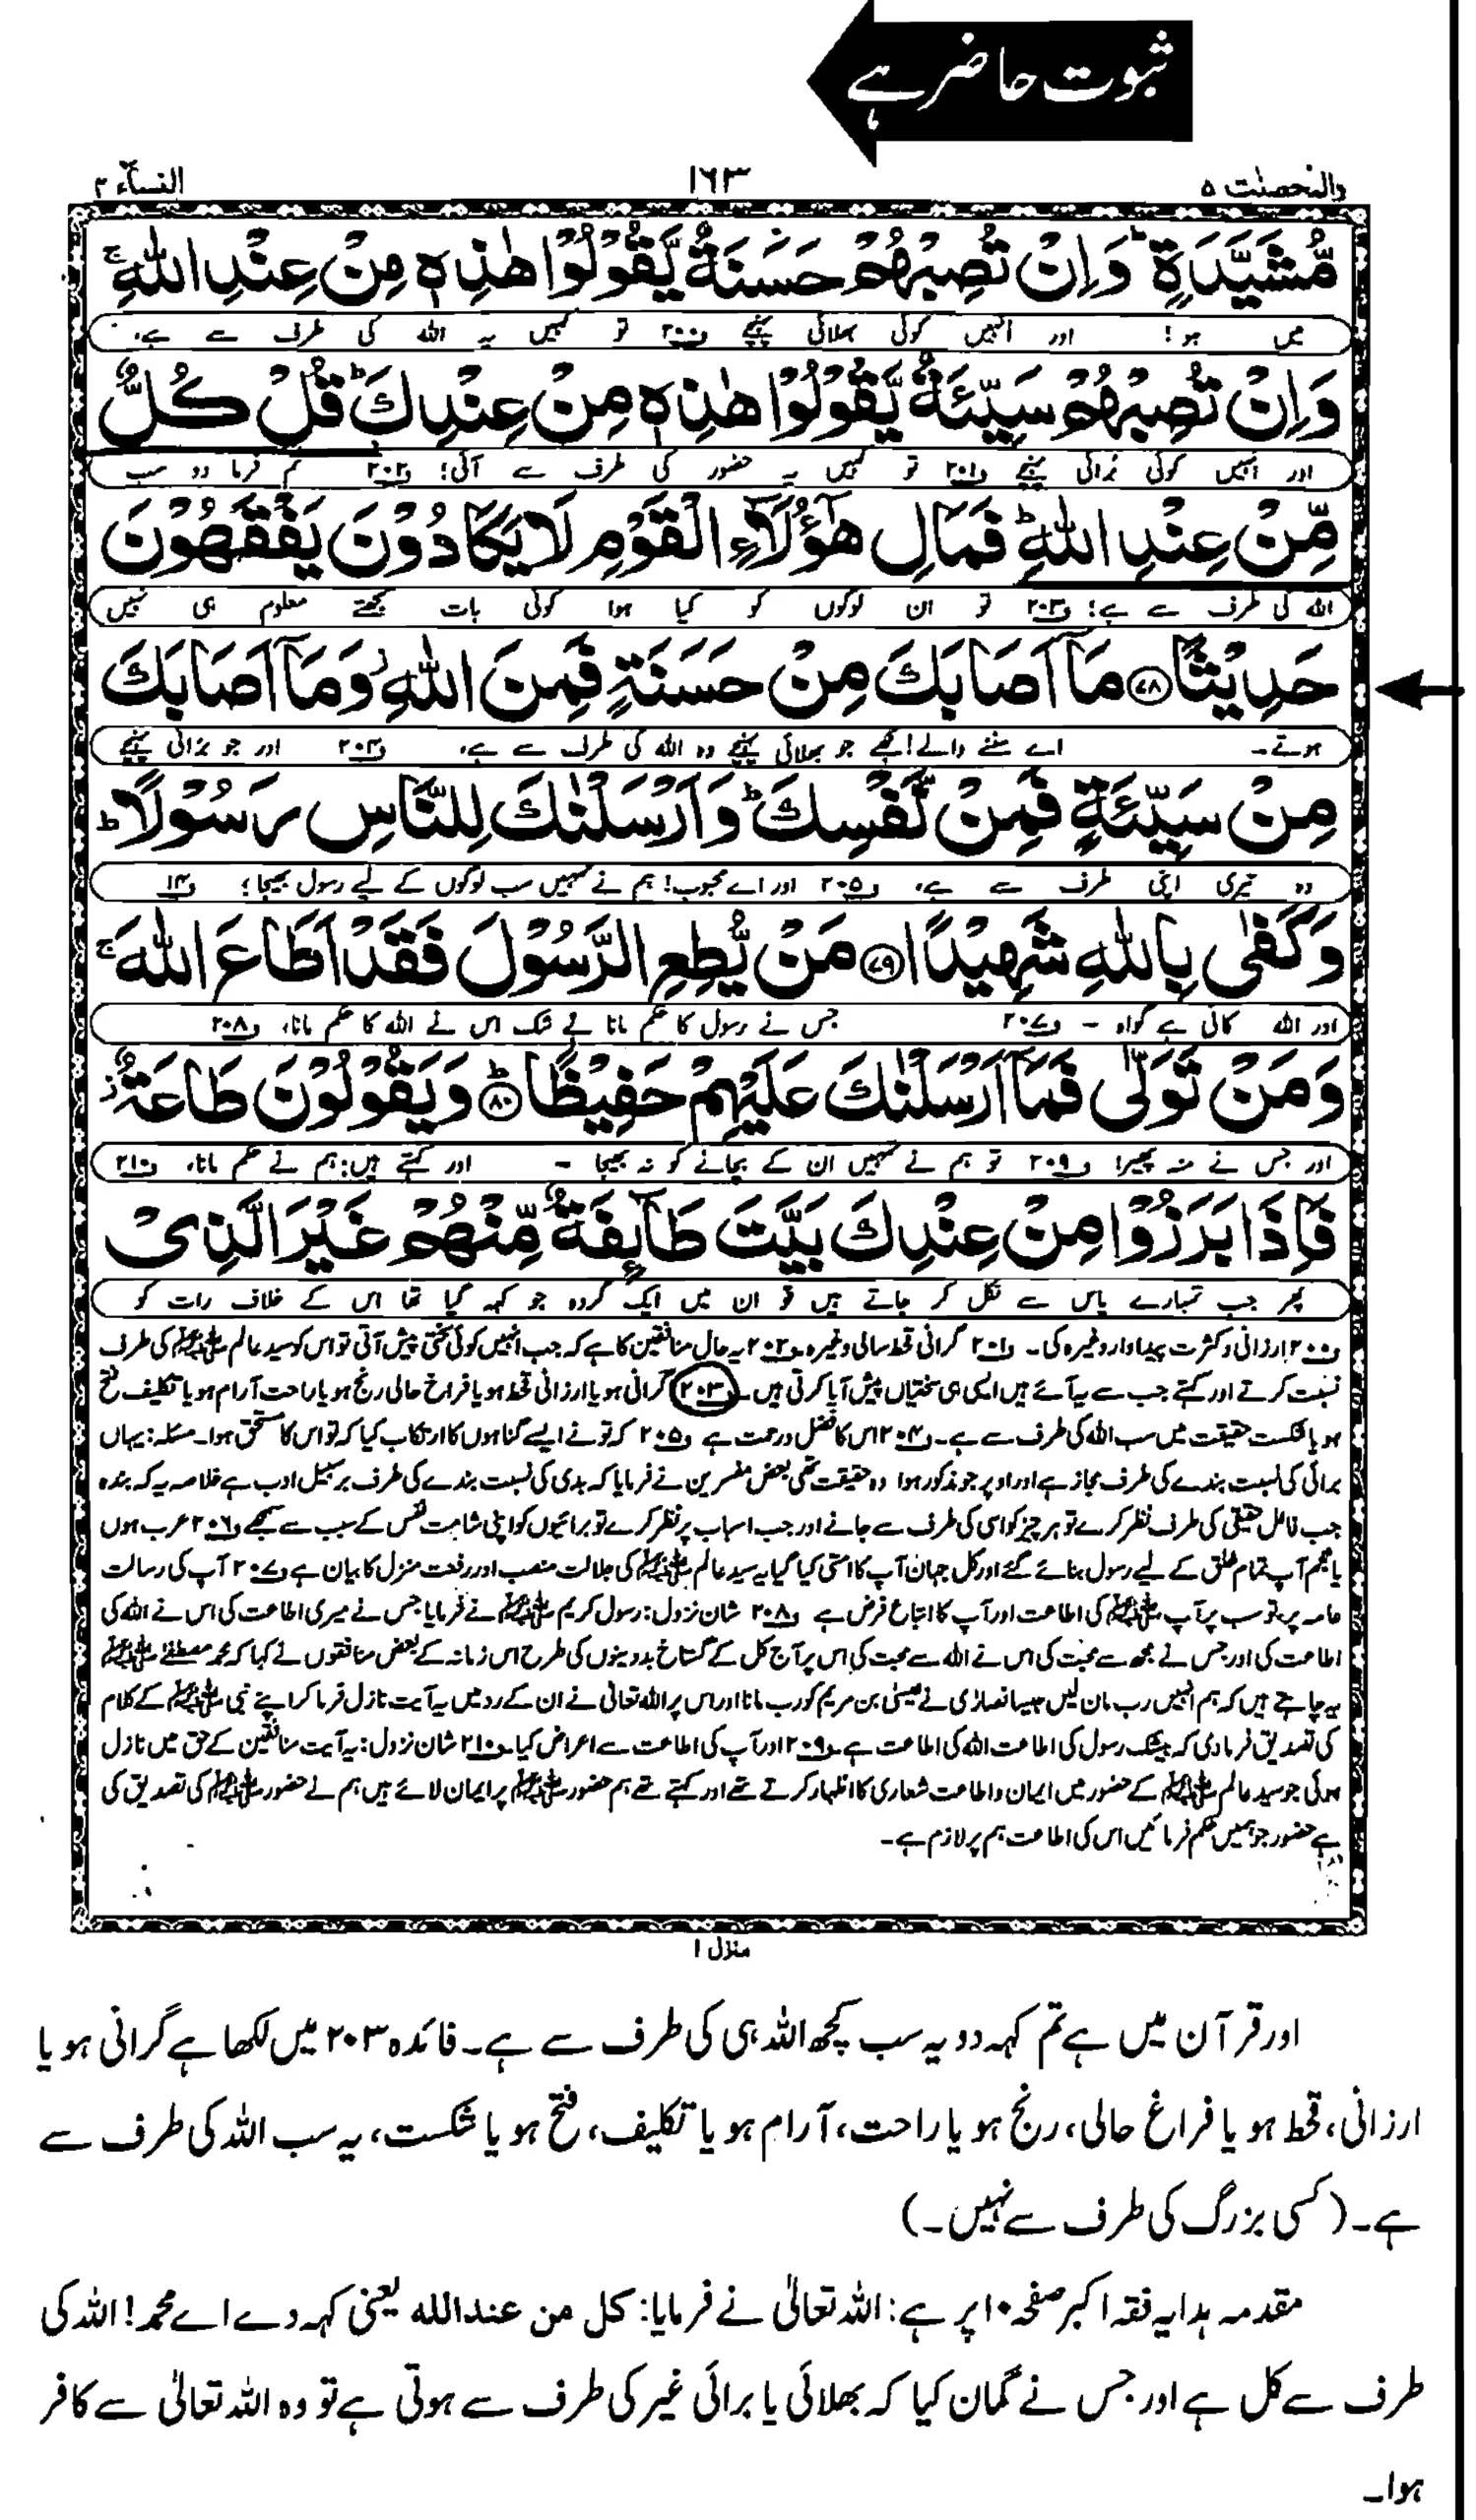 ثبوت حاضر ہے
والمحصنٰت ۵
۱۶۳
النسآء ۴
مُّشَیَّدَۃٍ ؕ وَاِنْ تُصِبْہُمْ حَسَنَۃٌ یَّقُوْلُوْا ہٰذِہٖ مِنْ عِنْدِ اللہِ ۚ
میں ہو ! اور انہیں کوئی بھلائی پہنچے ف۲۰۰ تو کہیں یہ اللہ کی طرف سے ہے،
وَاِنْ تُصِبْہُمْ سَیِّئَۃٌ یَّقُوْلُوْا ہٰذِہٖ مِنْ عِنْدِکَ ؕ قُلْ کُلٌّ
اور انہیں کوئی بُرائی پہنچے ف۲۰۱ تو کہیں یہ حضور کی طرف سے آئی ! ف۲۰۲ تم فرما دو سب
مِّنْ عِنْدِ اللہِ ؕ فَمَالِ ہٰۤؤُلَآءِ الْقَوْمِ لَا یَکَادُوْنَ یَفْقَہُوْنَ
اللہ کی طرف سے ہے ؛ ف۲۰۳ تو ان لوگوں کو کیا ہوا کوئی بات سمجھتے معلوم ہی نہیں
حَدِیْثًا ﴿۷۸﴾ مَاۤ اَصَابَکَ مِنْ حَسَنَۃٍ فَمِنَ اللہِ ۫ وَمَاۤ اَصَابَکَ
ہوتے ۔ اے سننے والے! تجھے جو بھلائی پہنچے وہ اللہ کی طرف سے ہے، ف۲۰۴ اور جو برائی پہنچے
مِنْ سَیِّئَۃٍ فَمِنْ نَّفْسِکَ ؕ وَاَرْسَلْنٰکَ لِلنَّاسِ رَسُوْلًا ؕ
وہ تیری اپنی طرف سے ہے، ف۲۰۵ اور اے محبوب! ہم نے تمہیں سب لوگوں کے لیے رسول بھیجا؛
وَکَفٰی بِاللہِ شَہِیْدًا ﴿۷۹﴾ مَنْ یُّطِعِ الرَّسُوْلَ فَقَدْ اَطَاعَ اللہَ ۚ
اور اللہ کافی ہے گواہ ۔ ف۲۰۷ جس نے رسول کا حکم مانا بے شک اس نے اللہ کا حکم مانا، ف۲۰۸
وَمَنْ تَوَلّٰی فَمَاۤ اَرْسَلْنٰکَ عَلَیْہِمْ حَفِیْظًا ﴿۸۰﴾ ؕ وَیَقُوْلُوْنَ طَاعَۃٌ ۫
اور جس نے منہ پھیرا ف۲۰۹ تو ہم نے تمہیں ان کے بچانے کو نہ بھیجا ۔ اور کہتے ہیں: ہم نے حکم مانا، ف۲۱۰
فَاِذَا بَرَزُوْا مِنْ عِنْدِکَ بَیَّتَ طَآئِفَۃٌ مِّنْہُمْ غَیْرَ الَّذِیْ
پھر جب تمہارے پاس سے نکل کر جاتے ہیں تو ان میں ایک گروہ جو کہہ گیا تھا اس کے خلاف رات کو
ف۲۰۰ ارزانی و کثرت پیداوار وغیرہ کی۔ ف۲۰۱ گرانی قحط سالی وغیرہ ف۲۰۲ یہ حال منافقین کا ہے کہ جب انہیں کوئی سختی پیش آتی تو اس کو سید عالم ﷺ کی طرف
نسبت کرتے اور کہتے جب سے یہ آئے ہیں ایسی ہی سختیاں پیش آیا کرتی ہیں۔ ف۲۰۳ گرانی ہو یا ارزانی قحط ہو یا فراخ حالی رنج ہو یا راحت آرام ہو یا تکلیف فتح
ہو یا شکست حقیقت میں سب اللہ کی طرف سے ہے۔ ف۲۰۴ اس کا فضل و رحمت ہے ف۲۰۵ کہ تو نے ایسے گناہوں کا ارتکاب کیا کہ تو اس کا مستحق ہوا۔ مسئلہ: یہاں
برائی کی نسبت بندے کی طرف مجاز ہے اور اوپر جو مذکور ہوا وہ حقیقت تھی بعض مفسرین نے فرمایا کہ بدی کی نسبت بندے کی طرف برسبیل ادب ہے خلاصہ یہ کہ بندہ
جب فاعل حقیقی کی طرف نظر کرے تو ہر چیز کو اسی کی طرف سے جانے اور جب اسباب پر نظر کرے تو برائیوں کو اپنی شامت نفس کے سبب سے سمجھے ف۲۰۶ عرب ہوں
یا عجم آپ تمام خلق کے لیے رسول بنائے گئے اور کل جہان آپ کا امتی کیا گیا یہ سید عالم ﷺ کی جلالت منصب اور رفعت منزل کا بیان ہے ف۲۰۷ آپ کی رسالت
عامہ پر تو سب پر آپ ﷺ کی اطاعت اور آپ کا اتباع فرض ہے ف۲۰۸ شان نزول: رسول کریم ﷺ نے فرمایا جس نے میری اطاعت کی اس نے اللہ کی
اطاعت کی اور جس نے مجھ سے محبت کی اس نے اللہ سے محبت کی اس پر آج کل کے گستاخ بددینوں کی طرح اس زمانہ کے بعض منافقوں نے کہا کہ محمد مصطفٰے ﷺ
یہ چاہتے ہیں کہ ہم انہیں رب مان لیں جیسا نصارٰی نے عیسٰی بن مریم کو رب مانا اور اس پر اللہ تعالٰی نے ان کے رد میں یہ آیت نازل فرما کر اپنے نبی ﷺ کے کلام
کی تصدیق فرما دی کہ بیشک رسول کی اطاعت اللہ کی اطاعت ہے۔ ف۲۰۹ اور آپ کی اطاعت سے اعراض کیا۔ ف۲۱۰ شان نزول: یہ آیت منافقین کے حق میں نازل
ہوئی جو سید عالم ﷺ کے حضور میں ایمان و اطاعت شعاری کا اظہار کرتے تھے اور کہتے تھے ہم حضور ﷺ پر ایمان لائے ہیں ہم نے حضور ﷺ کی تصدیق کی
ہے حضور جو ہمیں حکم فرمائیں اس کی اطاعت ہم پر لازم ہے۔
منزل ۱
اور قرآن میں ہے تم کہہ دو یہ سب کچھ اللہ ہی کی طرف سے ہے۔ فائدہ ۲۰۳ میں لکھا ہے گرانی ہو یا
ارزانی، قحط ہو یا فراغ حالی، رنج ہو یا راحت، آرام ہو یا تکلیف، فتح ہو یا شکست، یہ سب اللہ کی طرف سے
ہے۔ (کسی بزرگ کی طرف سے نہیں۔)
مقدمہ ہدایہ فقہ اکبر صفحہ ۱۰ پر ہے: اللہ تعالٰی نے فرمایا: کل من عنداللہ یعنی کہہ دے اے محمد! اللہ کی
طرف سے کل ہے اور جس نے گمان کیا کہ بھلائی یا برائی غیر کی طرف سے ہوتی ہے تو وہ اللہ تعالٰی سے کافر
ہوا۔